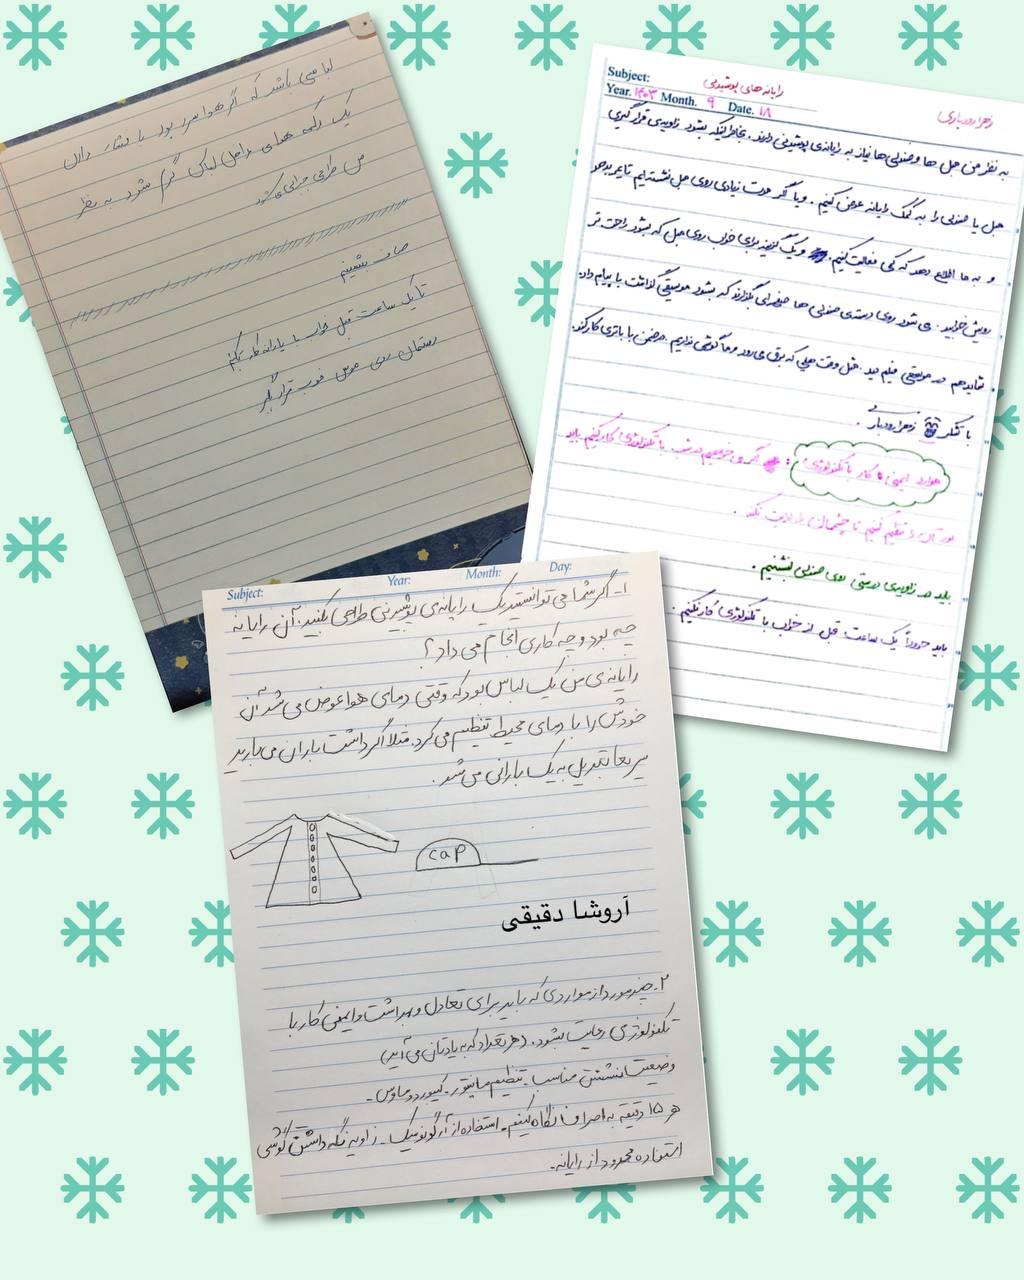 لباسی باشد که اگر هوا سرد بود با فشار دادن
یک دکمه هوای داخل لباس گرم شود به نظر
من طراحی جذابی می‌شود
صاف بشینیم
تا یک ساعت قبل خواب با یارانه کار نکنیم
دستمان روی موس خوب قرار گیرد
Subject: رایانه های پوشیدنی
زهرا رودباری
Year. ۱۴۰۳ Month. ۹ Date. ۱۸
به نظر من مبل ها و صندلی ها نیاز به رایانه‌ی پوشیدنی دارند. بخاطر اینکه بشود زاویه‌ی قرار گیری
مبل یا صندلی را به کمک رایانه عوض کنیم. و یا اگر مدت زیادی روی مبل نشسته ایم تایمر بدهد
و به ما اطلاع دهد که کی فعالیت کنیم. و یک گزینه برای خواب روی مبل که بشود راحت تر
رویش خوابید. می شود روی دسته‌ی صندلی ها صفحه ای بگذارند که بشود موسیقی گذاشت یا پیام داد.
شاید هم در مواقعی فیلم دید. مثل وقت هایی که برق می رود و ما گوشی نداریم. در ضمن با باتری کار کند.
با تشکر زهرا رودباری.
موارد ایمنی کار با تکنولوژی: اگر می خواهیم در شب با تکنولوژی کار کنیم باید
نور آن را تنظیم کنیم تا چشمان را اذیت نکند.
باید در زاویه‌ی درستی روی صندلی بنشینیم.
باید حدوداً یک ساعت قبل از خواب با تکنولوژی کار نکنیم.
Subject: Year: Month: Day:
۱- اگر شما می توانستید یک رایانه‌ی پوشیدنی طراحی بکنید، آن رایانه
چه بود و چه کاری انجام می داد؟
رایانه‌ی من یک لباس بود که وقتی دمای هوا عوض می شد آن
خودش را با دمای محیط تنظیم می کرد. مثلا اگر داشت باران می بارید
سریعا تبدیل به یک بارانی می شد.
cap
آروشا دقیقی
۲- چند مورد از مواردی که باید برای تعادل و بهداشت و ایمنی کار با
تکنولوژی رعایت بشود. (هر تعداد که به یادتان می آید)
وضعیت نشستن مناسب - تنظیم مانیتور - کیبورد و ماوس -
هر ۱۵ دقیقه به اطراف نگاه کنیم - استفاده از ارگونومیک - زاویه نگه داشتن گوشی
استفاده محدود از رایانه -